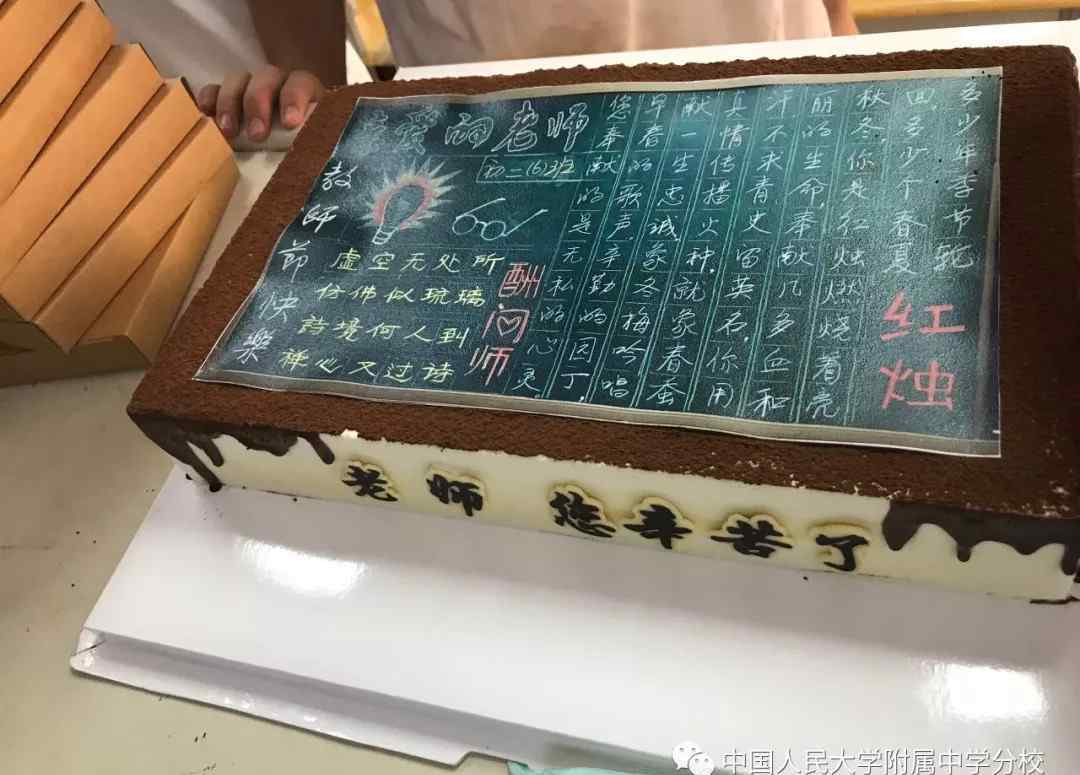 亲爱的老师
初二(6)班
教师節快樂
虚空无处所
仿佛似琉璃
詩境何人到
禅心又过诗
酬问师
红烛
多少年季节轮
回,多少个春夏
秋冬,你是红烛燃烧着亮
丽的生命,奉献几多血和
汗,不求青史留英名,你用
真情传播火种,就象春蚕
献一生忠诚,象冬梅吟唱
早春的歌声,辛勤的园丁,
您奉献的是无私的心灵。
老师 您辛苦了
中国人民大学附属中学分校